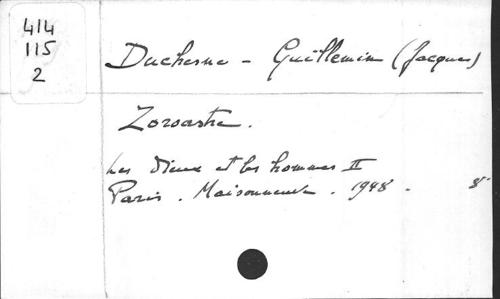 414
115
2
Duchesne - Guillemin (Jacques)
Zoroastre.
Les Dieux et les hommes II
Paris. Maisonneuve. 1948. 8°